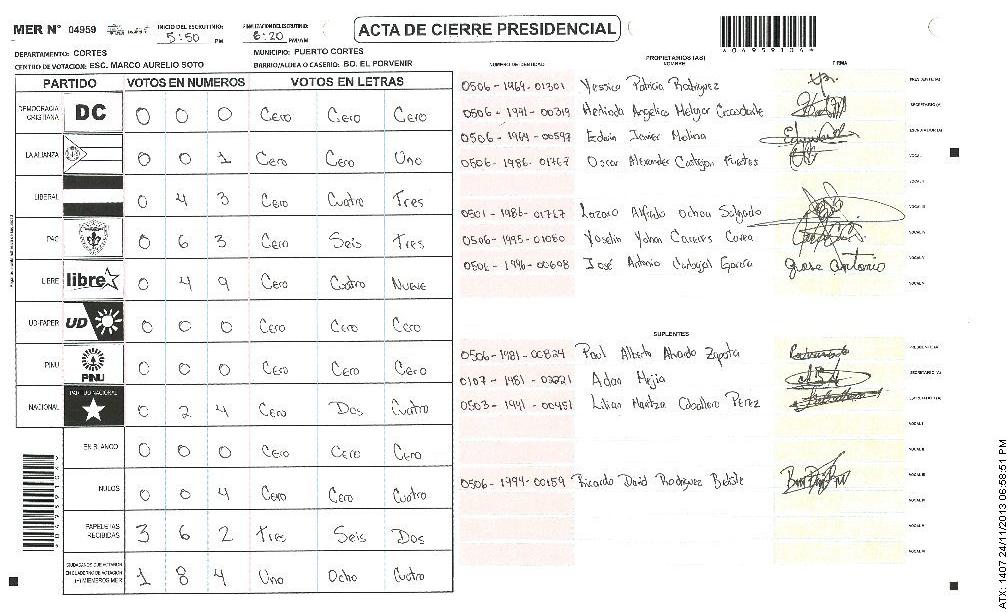 MER N° 04959
INICIO DEL ESCRUTINIO: 5:50 PM
FINALIZACION DEL ESCRUTINIO: 6:20 PM/AM
ACTA DE CIERRE PRESIDENCIAL
DEPARTAMENTO: CORTES
MUNICIPIO: PUERTO CORTES
CENTRO DE VOTACION: ESC. MARCO AURELIO SOTO
BARRIO/ALDEA O CASERIO: BO. EL PORVENIR
PARTIDO VOTOS EN NUMEROS VOTOS EN LETRAS
DEMOCRACIA CRISTIANA DC 0 0 0 Cero Cero Cero
LA ALIANZA 0 0 1 Cero Cero Uno
LIBERAL 0 4 3 Cero Cuatro Tres
PAC 0 6 3 Cero Seis Tres
LIBRE libre 0 4 9 Cero Cuatro Nueve
UD-FAPER UD 0 0 0 Cero Cero Cero
PINU PINU 0 0 0 Cero Cero Cero
NACIONAL PARTIDO NACIONAL 0 2 4 Cero Dos Cuatro
EN BLANCO 0 0 0 Cero Cero Cero
NULOS 0 0 4 Cero Cero Cuatro
PAPELETAS RECIBIDAS 3 6 2 Tres Seis Dos
CIUDADANOS QUE VOTARON EN CUADERNO DE VOTACION (+) MIEMBROS MER 1 8 4 Uno Ocho Cuatro
PROPIETARIOS (AS)
NUMERO DE IDENTIDAD NOMBRE FIRMA
0506-1969-01301 Yessica Patricia Rodriguez PRESIDENTE(A)
0506-1971-00319 Angelica SECRETARIO(A)
0506-1964-00597 Edwin Javier Molina ESCRUTADOR(A)
0506-1986-01767 Oscar Alexander Castrejon Fuentes VOCAL I
VOCAL II
0501-1986-01767 Lazaro Alfredo Ochoa Salgado VOCAL III
0506-1995-01080 Yoselin VOCAL IV
José Antonio Carbajal Garcia Jose Antonio VOCAL V
VOCAL VI
SUPLENTES
0506-1981-00824 Paul Alberto Alvarado Zapata PRESIDENTE(A)
0107-1981-02221 Adan Mejia SECRETARIO(A)
Lilian Maritza Caballero Perez ESCRUTADOR(A)
VOCAL I
VOCAL II
0506-1994-00159 Ricardo David Rodriguez VOCAL III
VOCAL IV
VOCAL V
VOCAL VI
ATX: 1407 24/11/2013 06:58:51 PM